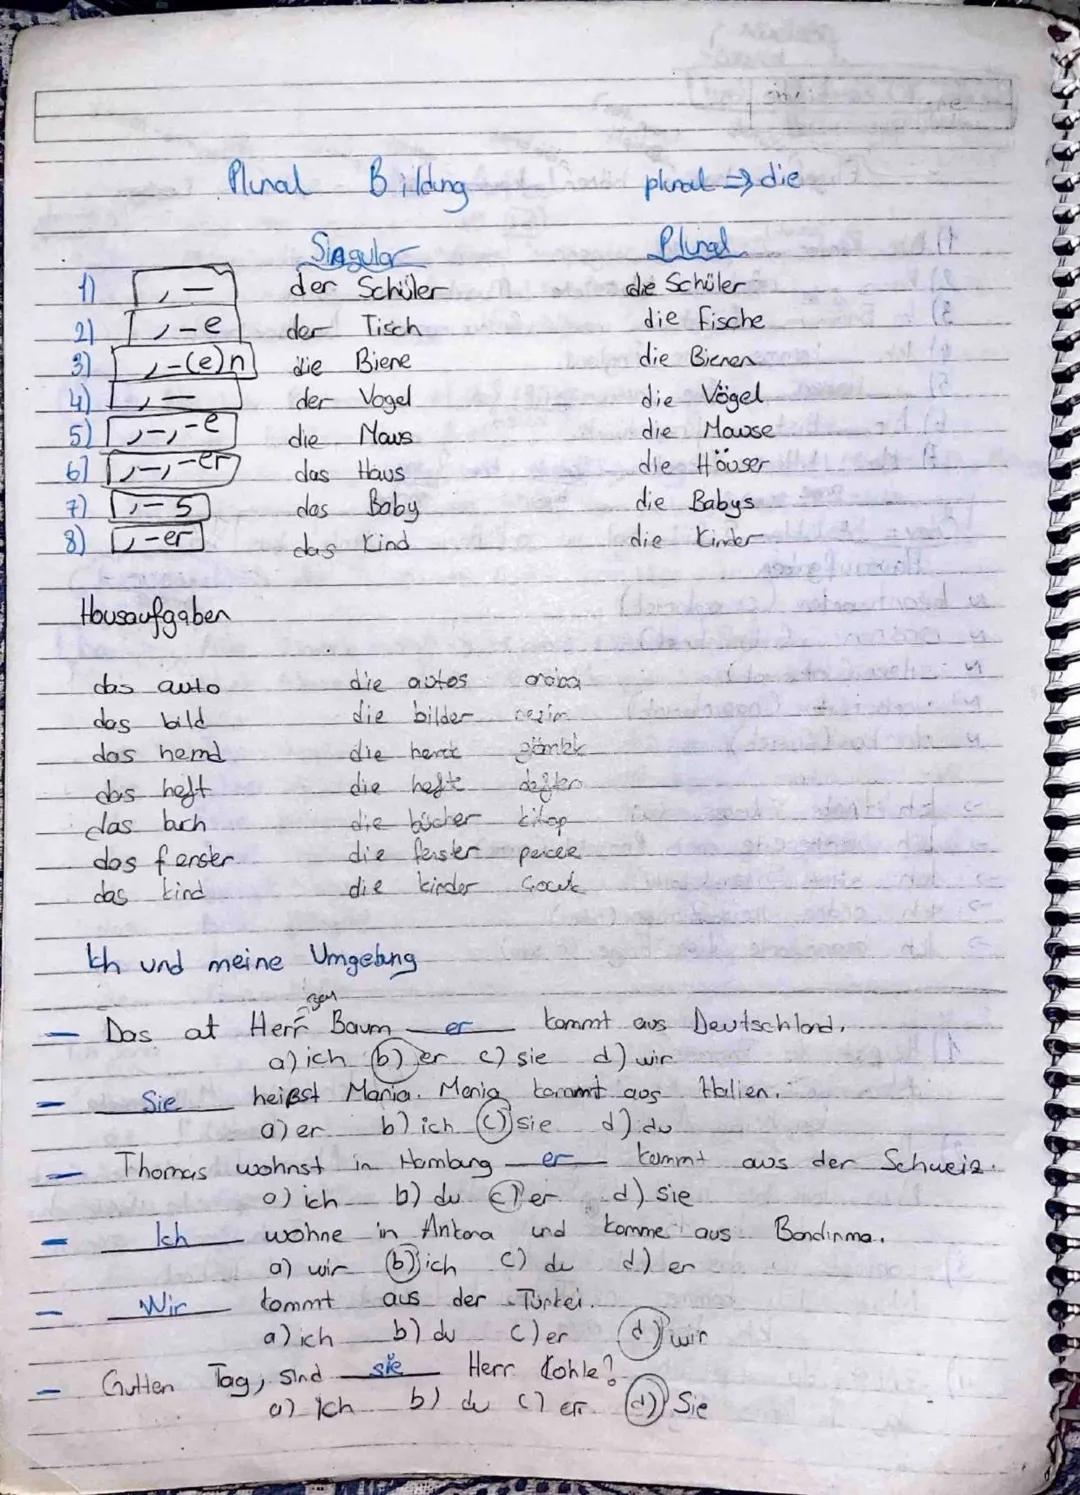 Plural Bildung plural => die
Singular Plural
1) , — der Schüler die Schüler
2) , -e der Tisch die Fische
3) , -(e)n die Biene die Bienen
4) , — der Vogel die Vögel
5) , -, -e die Maus die Mause
6) , -, -er das Haus die Höuser
7) , - s das Baby die Babys
8) , -er das Kind die Kinder
Housaufgaben
das auto die autos araba
das bild die bilder resim
das hemd die gömlek
das heft die hefte defter
das buch die bücher kitap
das fenster die fenster
das kind die kinder cocuk
Ich und meine Umgebung
— Das at Herr Baum er kommt aus Deutschland.
a) ich b) er c) sie d) wir
— Sie heißst Maria. Maria kommt aus Italien.
a) er b) ich c) sie d) du
— Thomas wohnst in Hamburg er kommt aus der Schweiz.
a) ich b) du c) er d) sie
— Ich wohne in Ankara und komme aus Bandırma.
a) wir b) ich c) du d) er
— Wir kommt aus der Türkei.
a) ich b) du c) er d) wir
— Gutten Tag, sind sie Herr Kohle?
a) Ich b) du c) er d) Sie